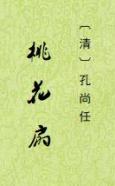 〔清〕孔尚任
桃花扇